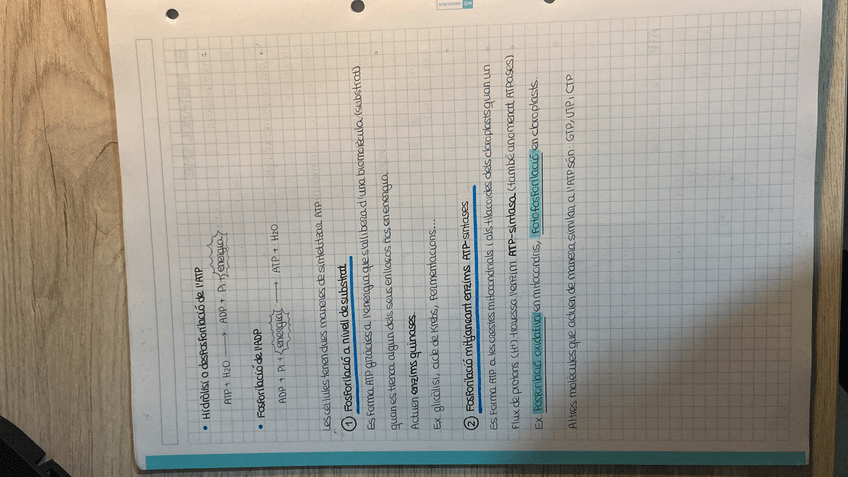 • Hidròlisi o desfosforilació de l'ATP
ATP + H2O → ADP + Pi + energia
• Fosforilació de l'ADP
ADP + Pi + energia → ATP + H2O
Les cèl·lules tenen dues maneres de sintetitzar ATP
① Fosforilació a nivell de substrat
Es forma ATP gràcies a l'energia que s'allibera d'una biomolècula (substrat)
quan es trenca algun dels seus enllaços rics en energia.
Actuen enzims quinases.
Ex: glicòlisi, cicle de Krebs, fermentacions...
② Fosforilació mitjançant enzims ATP-sintases
Es forma ATP a les crestes mitocondrials i als tilacoides dels cloroplasts quan un
flux de protons (H+) travessa l'enzim ATP-sintasa (també anomenat ATPases)
Ex: Fosforilació oxidativa en mitocondris, Fotofosforilació en cloroplasts.
Altres molècules que actuen de manera similar a l'ATP són: GTP, UTP i CTP.